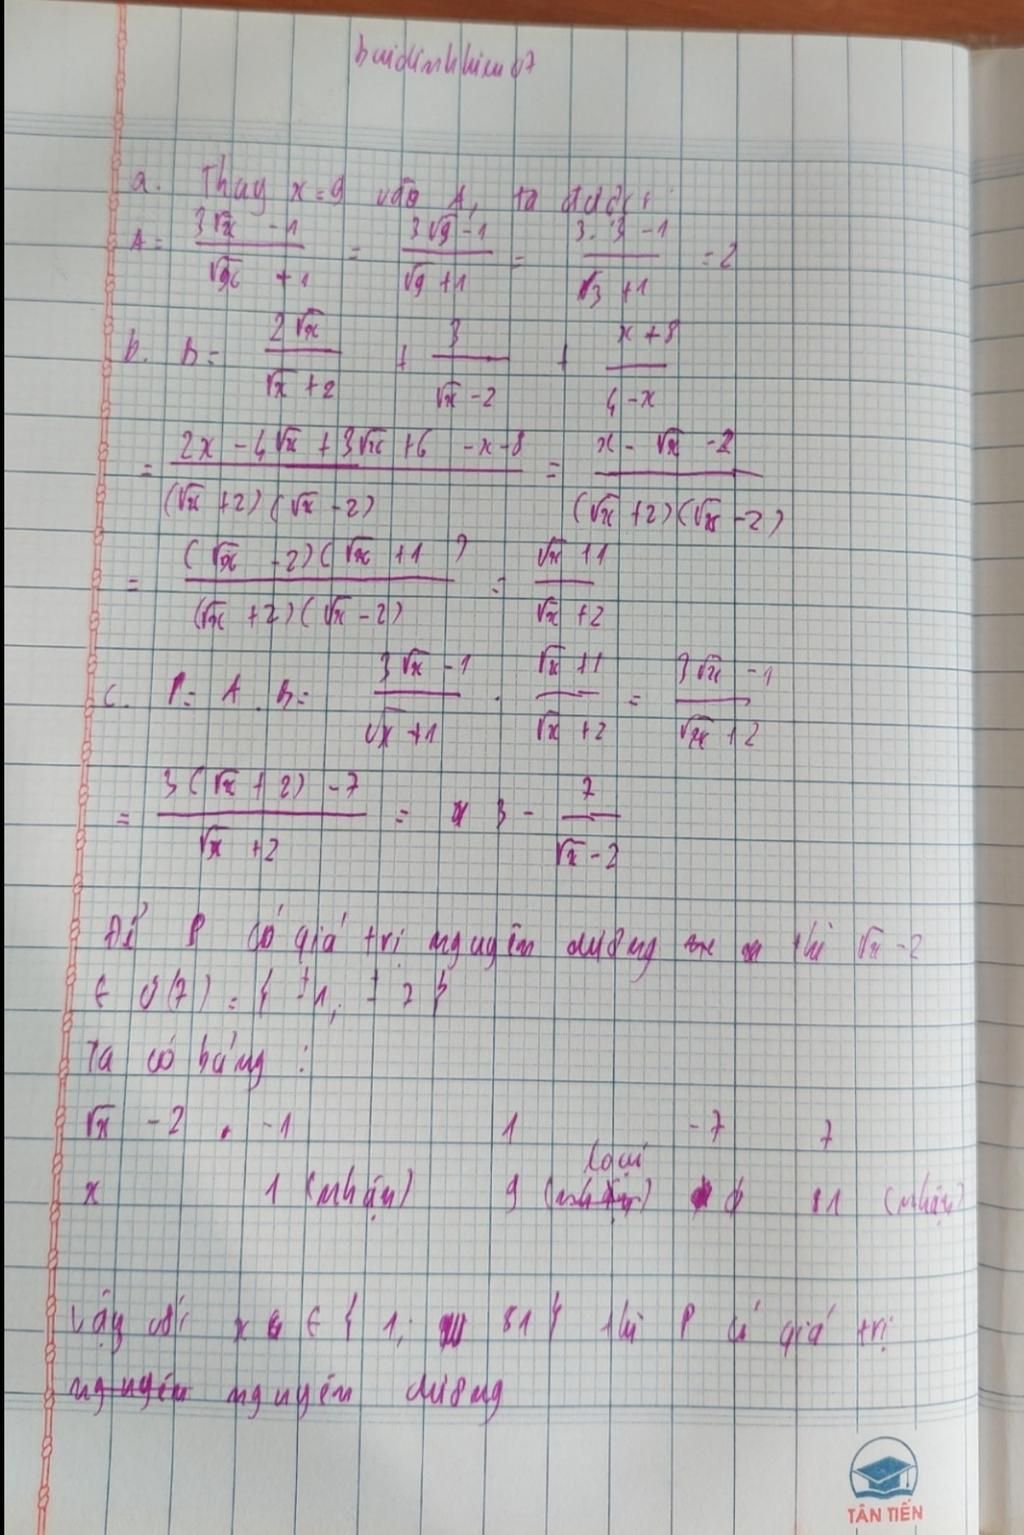 buidinhhieu07
a. Thay x=9 vào A, ta được:
A = (3√x - 1)/(√x + 1) = (3√9 - 1)/(√9 + 1) = (3.3 - 1)/(√3 + 1) = 2
b. B = 2√x/(√x + 2) + 3/(√x - 2) + (x + 8)/(4 - x)
= (2x - 4√x + 3√x + 6 - x - 8)/((√x + 2)(√x - 2)) = (x - √x - 2)/((√x + 2)(√x - 2))
= ((√x - 2)(√x + 1))/((√x + 2)(√x - 2)) = (√x + 1)/(√x + 2)
c. P = A . B = (3√x - 1)/(√x + 1) . (√x + 1)/(√x + 2) = (3√x - 1)/(√x + 2)
= (3(√x + 2) - 7)/(√x + 2) = 3 - 7/(√x - 2)
Để P có giá trị nguyên dương thì √x - 2
∈ Ư(7) = { ±1; ±7 }
Ta có bảng:
√x - 2 -1 1 -7 7
x 1 (nhận) 9 loại ∅ 81 (nhận)
Vậy với x ∈ { 1; 81 } thì P có giá trị
nguyên dương
TÂN TIẾN